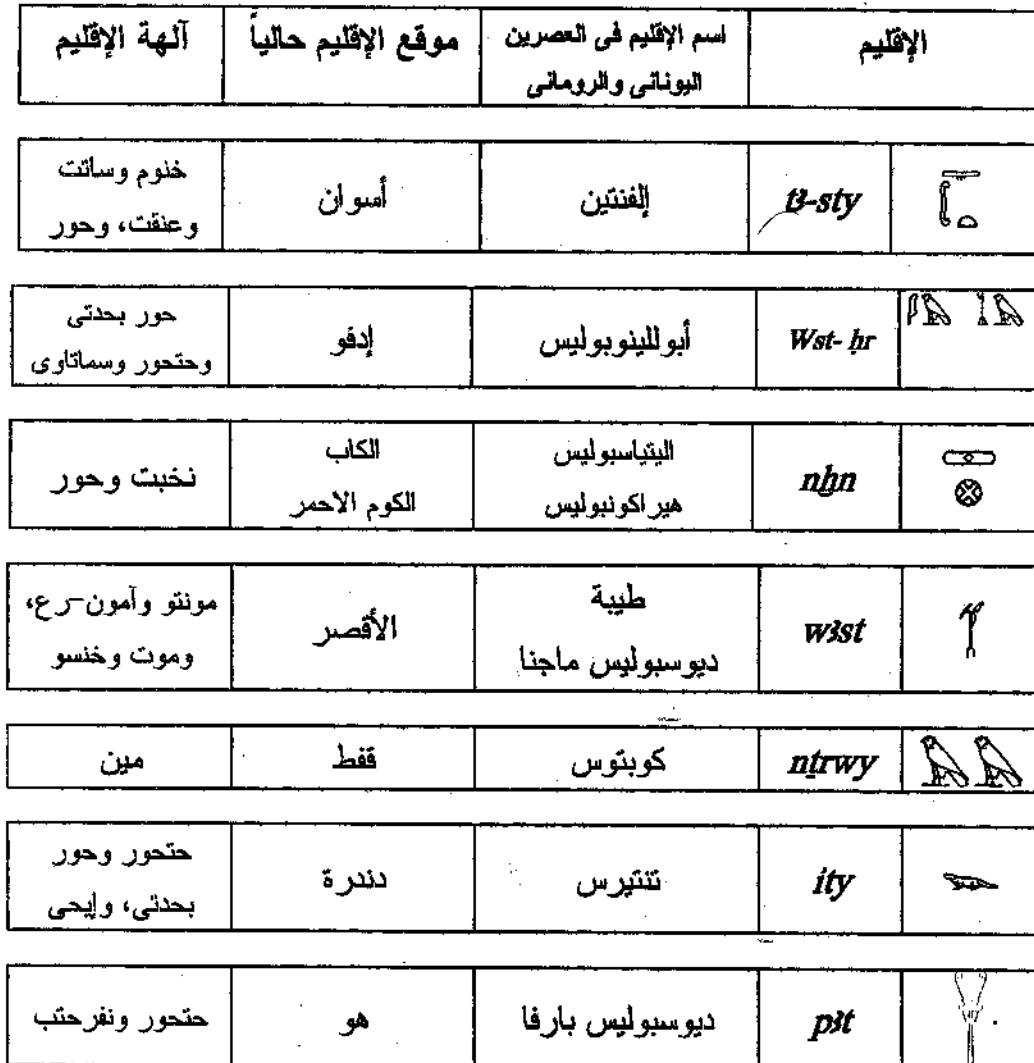 الإقليم
اسم الإقليم فى العصرين
اليونانى والرومانى
موقع الإقليم حالياً
آلهة الإقليم
tꜣ-sty
إلفنتين
أسوان
خنوم وساتت
وعنقت، وحور
Wst- ḥr
أبوللينوبوليس
إدفو
حور بحدتى
وحتحور وسماتاوى
nḫn
اليتياسبوليس
هيراكونبوليس
الكاب
الكوم الاحمر
نخبت وحور
wꜣst
طيبة
ديوسبوليس ماجنا
الأقصر
مونتو وآمون-رع،
وموت وخنسو
nṯrwy
كوبتوس
قفط
مين
ity
تنتيرس
دندرة
حتحور وحور
بحدتى، وإيحى
pꜣt
ديوسبوليس بارفا
هو
حتحور ونفرحتب